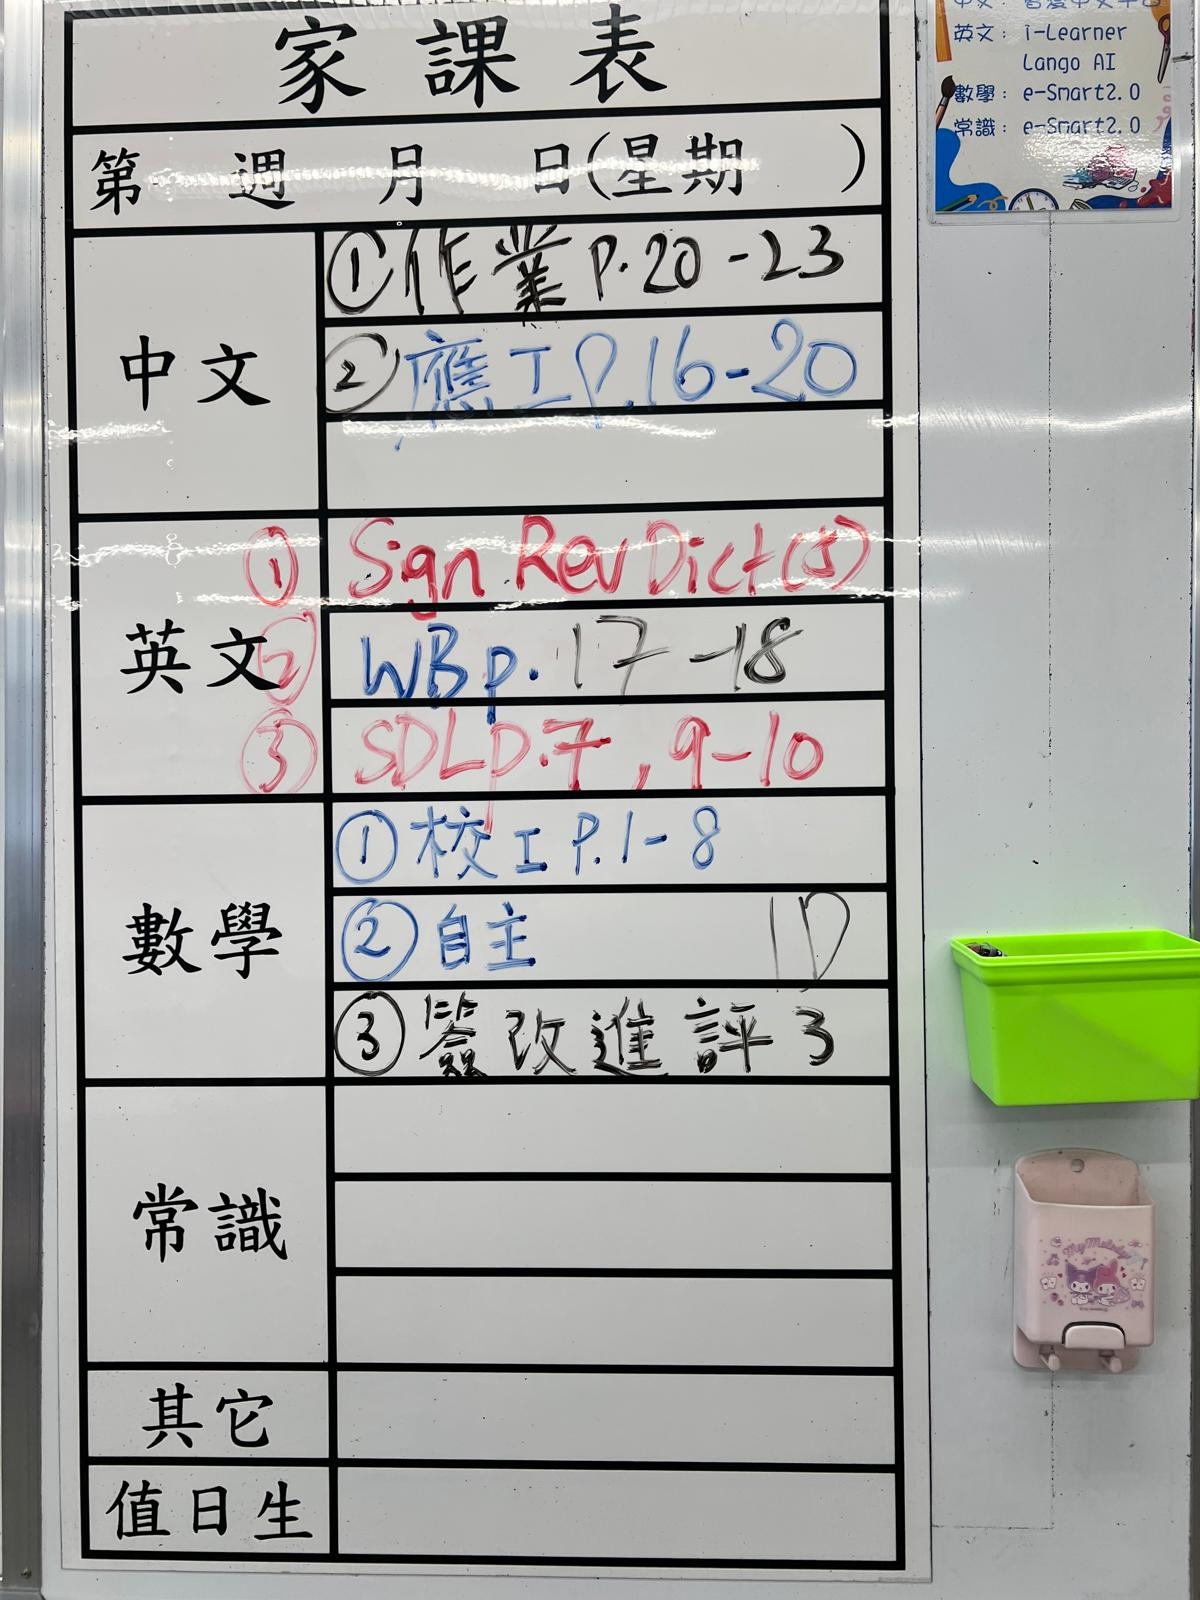 家課表
第 週 月 日(星期 )
中文
①作業 P.20-23
②應工P.16-20
英文
① Sign Rev Dict(5)
② WB p.17-18
③ SDL p.7, 9-10
數學
①校工 P.1-8
②自主 1D
③簽改進評3
常識
其它
值日生
英文: i-Learner
Lango AI
數學: e-Smart2.0
常識: e-Smart2.0
My Melody